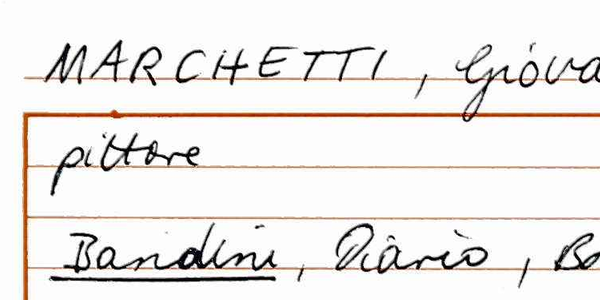 MARCHETTI, Giova
pittore
Bandini, Diario, Ba